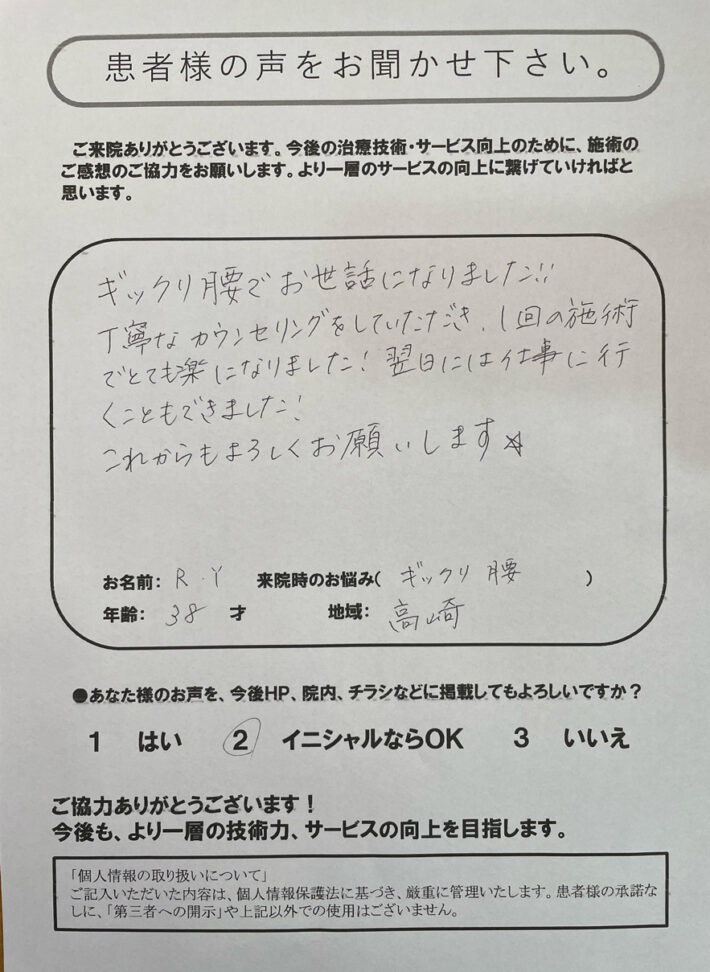 患者様の声をお聞かせ下さい。
ご来院ありがとうございます。今後の治療技術・サービス向上のために、施術の
ご感想のご協力をお願いします。より一層のサービスの向上に繋げていければと
思います。
ギックリ腰でお世話になりました!!
丁寧なカウンセリングをしていただき、1回の施術
でとても楽になりました!翌日には仕事に行
くこともできました!
これからもよろしくお願いします☆
お名前: R.Y 来院時のお悩み( ギックリ腰 )
年齢: 38 才 地域: 高崎
●あなた様のお声を、今後HP、院内、チラシなどに掲載してもよろしいですか?
1 はい 2 イニシャルならOK 3 いいえ
ご協力ありがとうございます!
今後も、より一層の技術力、サービスの向上を目指します。
「個人情報の取り扱いについて」
ご記入いただいた内容は、個人情報保護法に基づき、厳重に管理いたします。患者様の承諾な
しに、「第三者への開示」や上記以外での使用はございません。